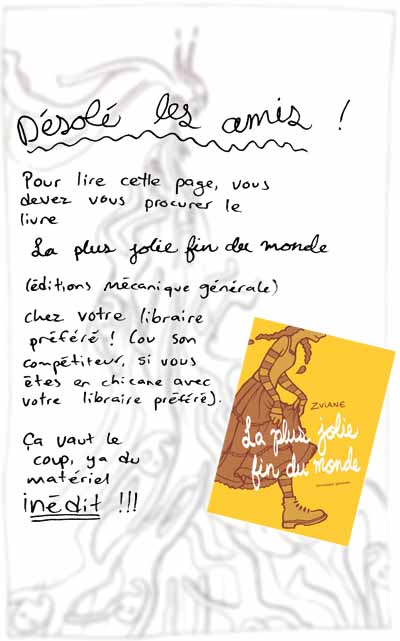 Désolé les amis !
Pour lire cette page, vous
devez vous procurer le
livre
La plus jolie fin du monde
(éditions mécanique générale)
chez votre libraire
préféré ! (ou son
compétiteur, si vous
êtes en chicane avec
votre libraire préféré).
ZVIANE
La plus jolie
fin du monde
Ça vaut le
coup, ya du
matériel
inédit !!!